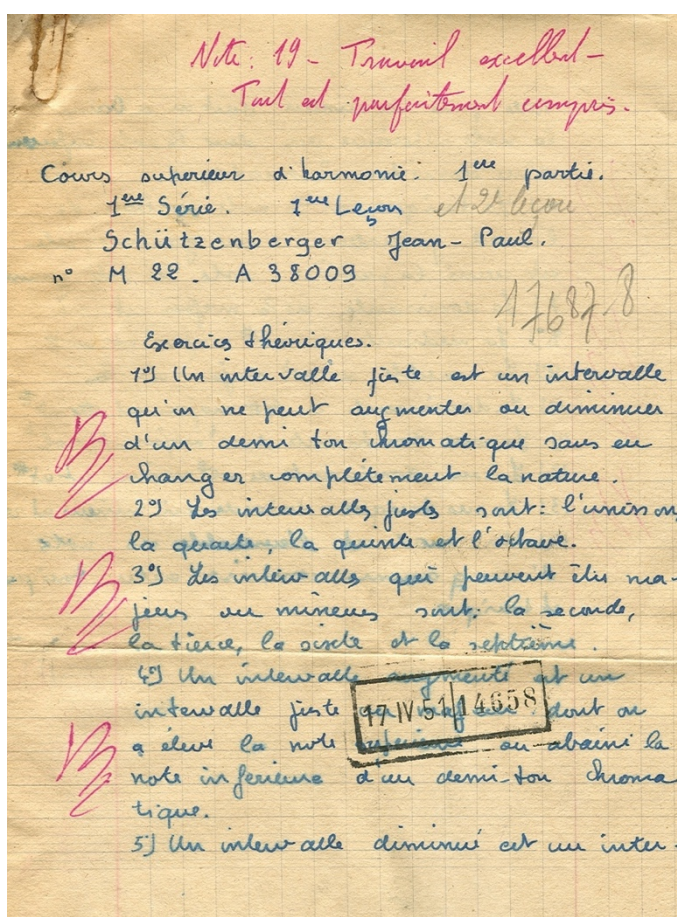 Note: 19 - Travail excellent -
Tout est parfaitement compris.
Cours supérieur d'harmonie. 1ere partie.
1ere Série. 1ere Leçon et 2e leçon
Schützenberger Jean-Paul.
n° M 22. A 38009
17687-8
Exercices théoriques.
1°) Un intervalle juste est un intervalle
qu'on ne peut augmenter ou diminuer
d'un demi ton chromatique sans en
changer complétement la nature.
2°) Les intervalles justes sont: l'unisson,
la quarte, la quinte et l'octave.
3°) Les intervalles qui peuvent être ma-
jeurs ou mineurs sont: la seconde,
la tierce, la sixte et la septième.
4°) Un intervalle augmenté est un
intervalle juste dont on
17 IV 51 14658
a élevé la note supérieure ou abaissé la
note inférieure d'un demi-ton chroma
tique.
5°) Un intervalle diminué est un inter-